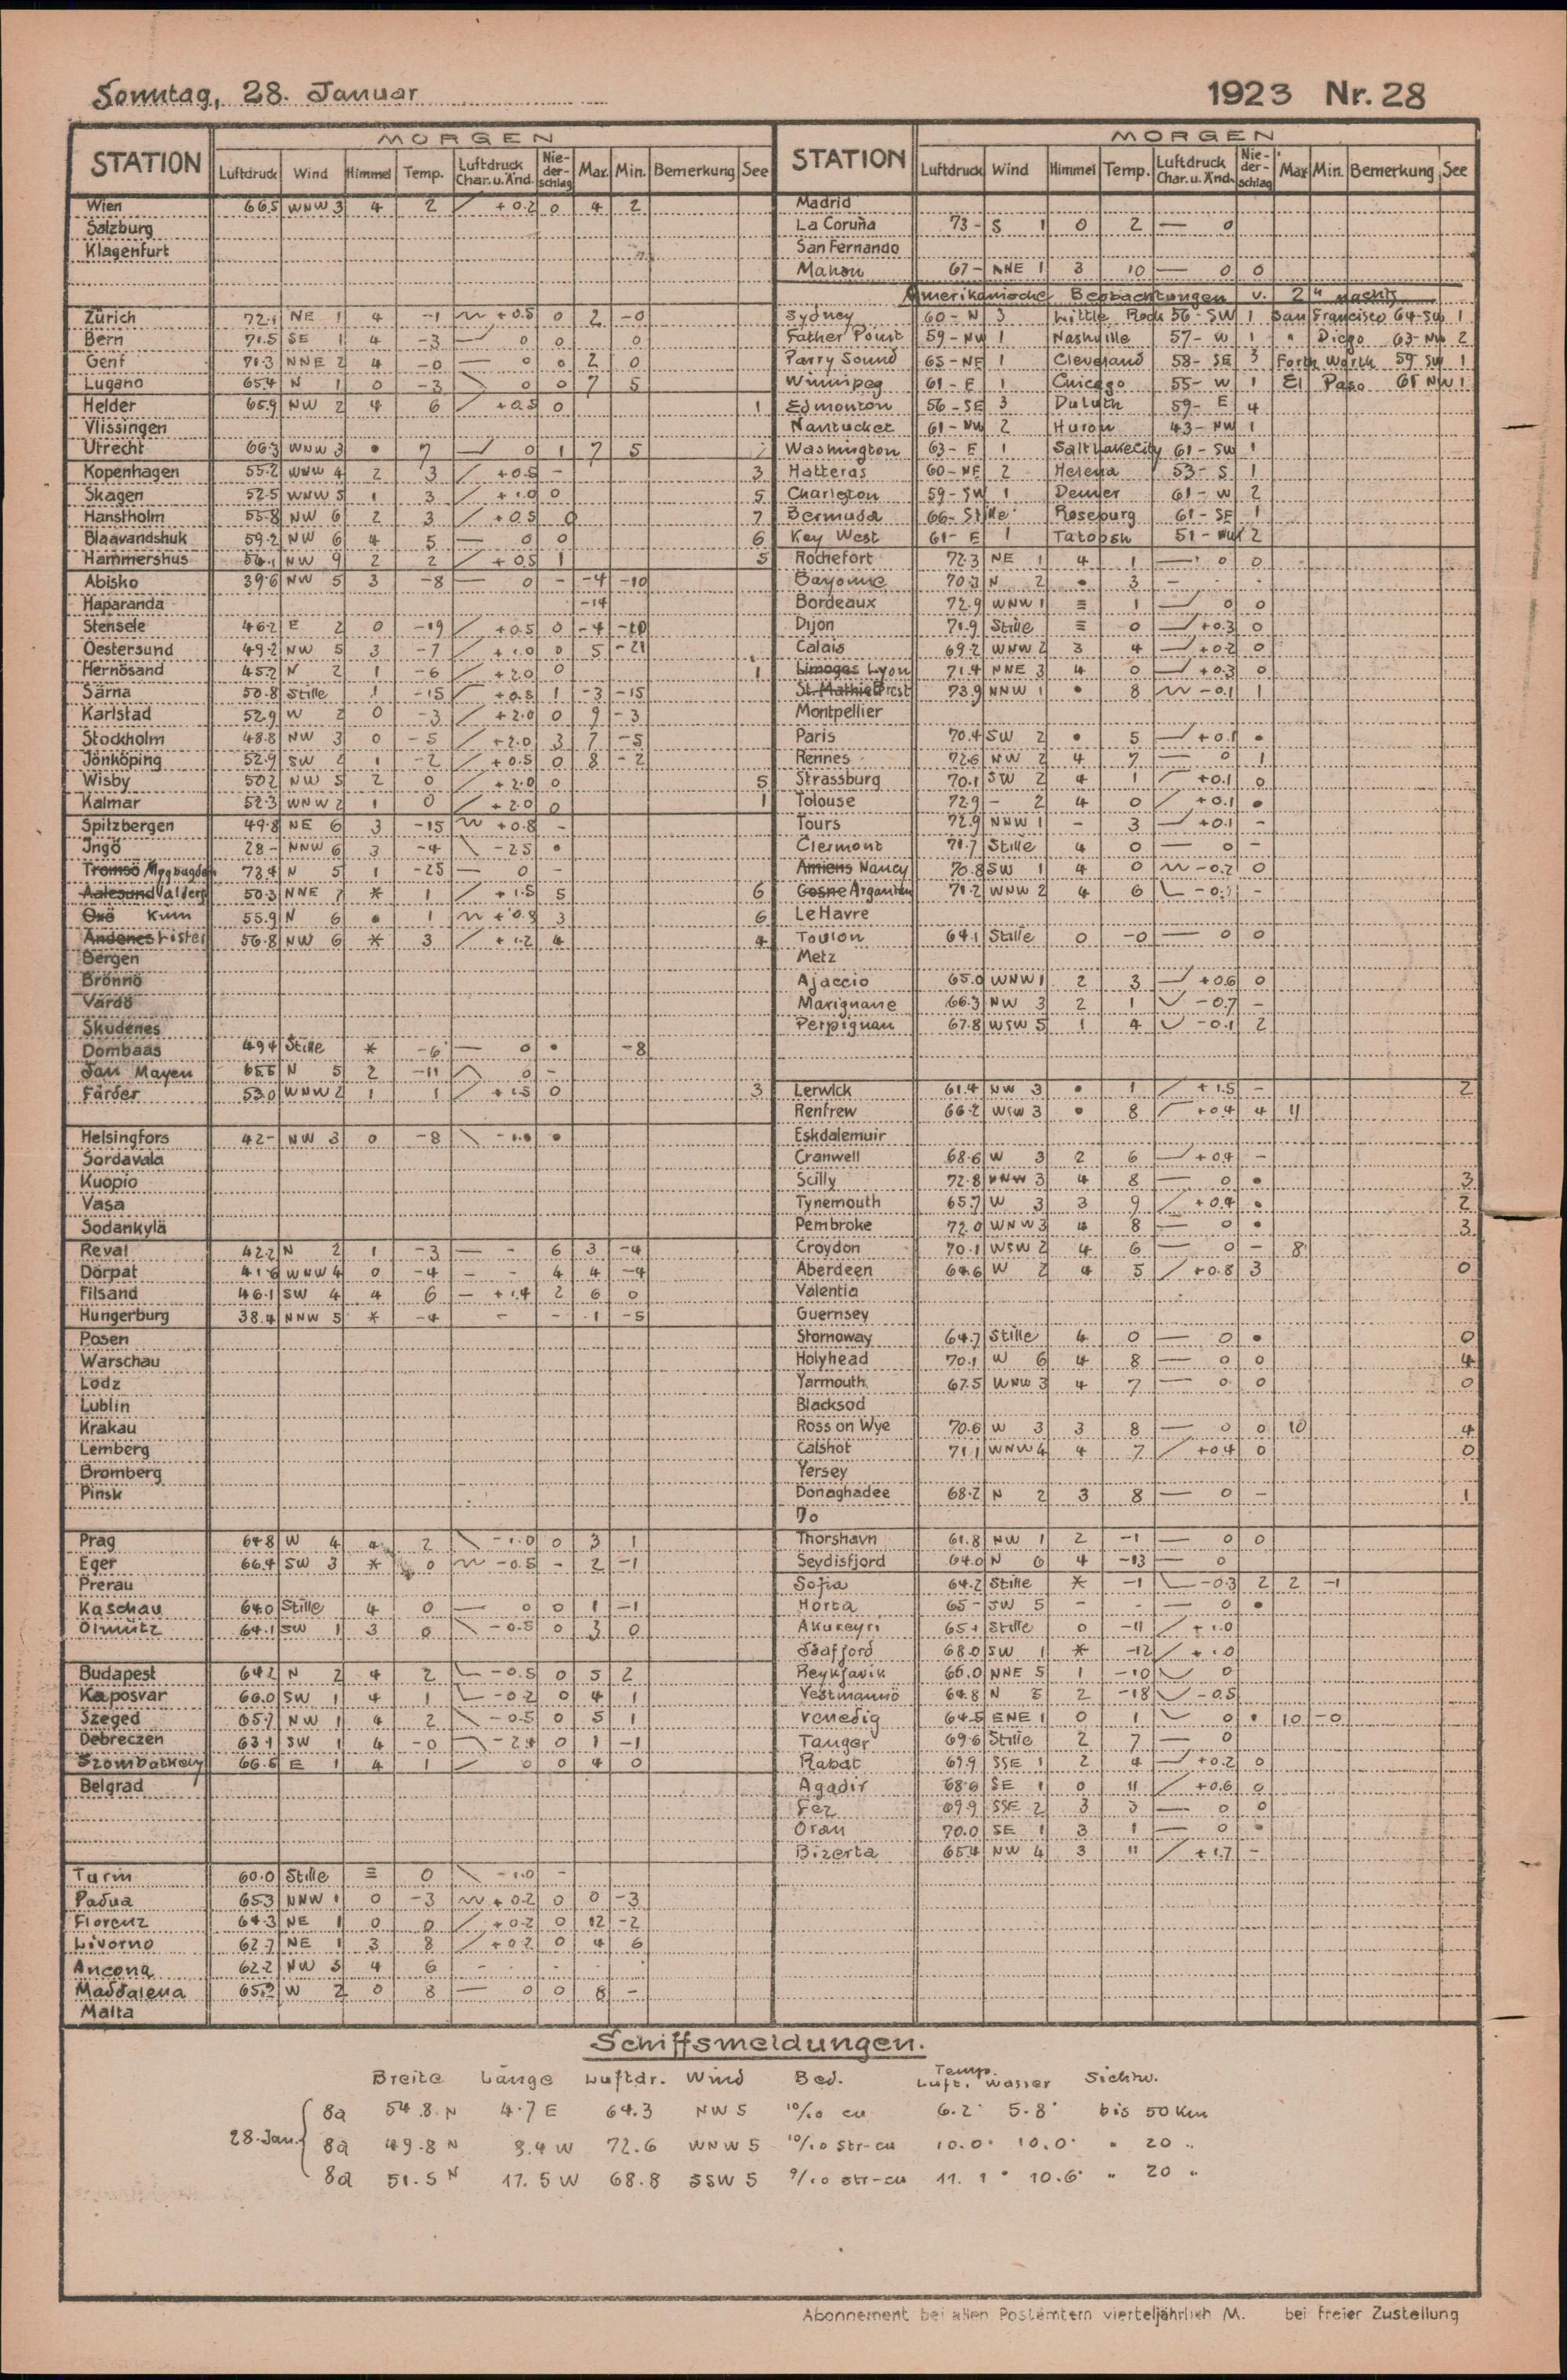 Sonntag, 28. Januar
1923 Nr. 28
STATION MORGEN
Luftdruck Wind Himmel Temp. Luftdruck Char. u. Änd. Nie-der-schlag Max. Min. Bemerkung See
Wien 66.5 WNW 3 4 2 + 0.2 0 4 2
Salzburg
Klagenfurt
Zürich 72.1 NE 1 4 -1 + 0.5 0 2 -0
Bern 71.5 SE 1 4 -3 0 0 0
Genf 71.3 NNE 2 4 -0 — 0 0 2 0
Lugano 65.4 N 1 0 -3 0 0 7 5
Helder 65.9 NW 2 4 6 + 0.5 0 1
Vlissingen
Utrecht 66.3 WNW 3 • 7 0 1 7 5
Kopenhagen 55.2 WNW 4 2 3 + 0.5 - 3
Skagen 52.5 WNW 5 1 3 + 1.0 0 5
Hanstholm 55.8 NW 6 2 3 + 0.5 0 7
Blaavandshuk 59.2 NW 6 4 5 — 0 0 6
Hammershus NW 9 2 2 + 0.5 1 5
Abisko 39.6 NW 5 3 -8 — 0 - -4 -10
Haparanda -14
Stensele 46.2 E 2 0 -19 + 0.5 0 -4 -20
Oestersund 49.2 NW 5 3 -7 + 1.0 0 5 -21
Hernösand 45.2 N 2 1 -6 + 2.0 0 1
Särna 50.8 Stille 1 -15 + 0.5 1 -3 -15
Karlstad 52.9 W 2 0 -3 + 2.0 0 9 -3
Stockholm 48.8 NW 3 0 -5 + 2.0 3 7 -5
Jönköping 52.9 SW 2 1 -2 + 0.5 0 8 -2
Wisby 50.2 NW 5 2 0 + 2.0 0 5
Kalmar 52.3 WNW 2 1 0 + 2.0 0 1
Spitzbergen 49.8 NE 6 3 -15 + 0.8 -
Ingö 28- NNW 6 3 -4 -2.5 •
Tromsö 73.4 N 5 1 -25 — 0 -
Aalesund 50.3 NNE 7 * 1 + 1.5 5 6
Oxö 55.9 N 6 • 1 + 0.8 3 6
Andenes Lister 56.8 NW 6 * 3 + 1.2 4 4
Bergen
Brönnö
Vardö
Skudenes
Dombaas 49.4 Stille * -6 — 0 • -8
Jan Mayen N 5 2 -11 0 -
Färder 53.0 WNW 2 1 1 + 1.5 0 3
Helsingfors 42- NW 3 0 -8 -1.0 •
Sordavala
Kuopio
Vasa
Sodankylä
Reval 42.2 N 2 1 -3 — - 6 3 -4
Dorpat 41.6 WNW 4 0 -4 - - 4 4 -4
Filsand 46.1 SW 4 4 6 — + 1.4 2 6 0
Hungerburg 38.4 NNW 5 * -4 - - 1 -5
Posen
Warschau
Lodz
Lublin
Krakau
Lemberg
Bromberg
Pinsk
Prag 64.8 W 4 4 2 -1.0 0 3 1
Eger 66.4 SW 3 * 0 -0.5 - 2 -1
Prerau
Kaschau 64.0 Stille 4 0 — 0 0 1 -1
Olmütz 64.1 SW 1 3 0 -0.5 0 3 0
Budapest 64.2 N 2 4 2 -0.5 0 5 2
Kaposvar 66.0 SW 1 4 1 -0.2 0 4 1
Szeged 65.7 NW 1 4 2 -0.5 0 5 1
Debreczen 63.1 SW 1 4 -0 -2.4 0 1 -1
Szombathely 66.6 E 1 4 1 0 0 4 0
Belgrad
Turin 60.0 Stille ≡ 0 -1.0 -
Padua 65.3 NNW 1 0 -3 + 0.2 0 0 -3
Florenz 64.3 NE 1 0 0 + 0.2 0 12 -2
Livorno 62.7 NE 1 3 8 + 0.2 0 4 6
Ancona 62.2 NW 3 4 6 -
Maddalena W 2 0 8 — 0 0 8 -
Malta
STATION MORGEN
Luftdruck Wind Himmel Temp. Luftdruck Char. u. Änd. Nie-der-schlag Max. Min. Bemerkung See
Madrid
La Coruña 73- S 1 0 2 — 0
San Fernando
Mahon 67- NNE 1 3 10 — 0 0
Amerikanische Beobachtungen v. 2 nachts
Sydney 60- N 3 Little Rock 56- SW 1 San Francisco 64- SW 1
Father Point 59- NW 1 Nashville 57- W 1 " Diego 63- NW 2
Parry Sound 65- NE 1 Cleveland 58- SE 3 Forth Worth 59 SW 1
Winnipeg 61- E 1 Chicago 55- W 1 El Paso 61 NW 1
Edmonton 56- SE 3 Duluth 59- E 4
Nantucket 61- NW 2 Huron 43- NW 1
Washington 63- E 1 Salt Lake City 61- SW 1
Hatteras 60- NE 2 Helena 53- S 1
Charleston 59- SW 1 Denver 61- W 2
Bermuda 66- Stille Roseburg 61- SE 1
Key West 61- E 1 Tatoosh 51- NW 2
Rochefort 72.3 NE 1 4 1 0 0
Bayonne 70.3 N 2 • 3 -
Bordeaux 72.9 WNW 1 ≡ 1 0 0
Dijon 71.9 Stille ≡ 0 + 0.3 0
Calais 69.2 WNW 2 3 4 + 0.2 0
Limoges Lyon 71.4 NNE 3 4 0 + 0.3 0
St. Mathieu Brest 73.9 NNW 1 • 8 -0.1 1
Montpellier
Paris 70.4 SW 2 • 5 + 0.1 •
Rennes 72.6 NW 2 4 7 — 0 1
Strassburg 70.1 SW 2 4 1 + 0.1 0
Tolouse 72.9 - 2 4 0 + 0.1 •
Tours 72.9 NNW 1 - 3 + 0.1 -
Clermont 71.7 Stille 4 0 — 0 -
Amiens Nancy 70.8 SW 1 4 0 -0.2 0
Cosne Argentan 71.2 WNW 2 4 6 -
Le Havre
Toulon 64.1 Stille 0 -0 — 0 0
Metz
Ajaccio 65.0 WNW 1 2 3 + 0.6 0
Marignane 66.3 NW 3 2 1 -0.7 -
Perpignan 67.8 WSW 5 1 4 -0.1 2
Lerwick 61.4 NW 3 • 1 + 1.5 - 2
Renfrew 66.2 WSW 3 • 8 + 0.4 4 11
Eskdalemuir
Cranwell 68.6 W 3 2 6 + 0.4 -
Scilly 72.8 WNW 3 4 8 — 0 • 3
Tynemouth 65.7 W 3 3 9 + 0.4 • 2
Pembroke 72.0 WNW 3 4 8 — 0 • 3
Croydon 70.1 WSW 2 4 6 — 0 - 8
Aberdeen 64.6 W 2 4 5 + 0.8 3 0
Valentia
Guernsey
Stornoway 64.7 Stille 4 0 — 0 • 0
Holyhead 70.1 W 6 4 8 — 0 0 4
Yarmouth 67.5 WNW 3 4 7 — 0 0 0
Blacksod
Ross on Wye 70.6 W 3 3 8 — 0 0 10 4
Calshot 71.1 WNW 4 4 7 + 0.4 0 0
Yersey
Donaghadee 68.2 N 2 3 8 — 0 - 1
Do
Thorshavn 61.8 NW 1 2 -1 — 0 0
Seydisfjord 64.0 N 6 4 -13 — 0
Sofia 64.2 Stille * -1 -0.3 2 2 -1
Horta 65- SW 5 - - — 0 •
Akureyri 65.1 Stille 0 -11 + 1.0
Isafjord 68.0 SW 1 * -12 + 1.0
Reykjavik 66.0 NNE 5 1 -10 0
Vestmannö 64.8 N 5 2 -18 -0.5
Venedig 64.5 ENE 1 0 1 0 • 10 -0
Tanger 69.6 Stille 2 7 — 0
Rabat 69.9 SSE 1 2 4 + 0.2 0
Agadir 68.6 SE 1 0 11 + 0.6 0
Fez 69.9 SSE 2 3 3 — 0 0
Oran 70.0 SE 1 3 1 — 0 •
Bizerta 65.4 NW 4 3 11 + 1.7 -
Schiffsmeldungen.
Breite Länge Luftdr. Wind Bed. Temp. Luft. Wasser Sichtw.
28. Jan. 8a 54.8 N 4.7 E 64.3 NW 5 10/10 cu 6.2° 5.8° bis 50 Km
8a 49.8 N 9.4 W 72.6 WNW 5 10/10 Str-cu 10.0° 10.0° " 20 "
8a 51.5 N 17.5 W 68.8 SSW 5 9/10 str-cu 11.1° 10.6° " 20 "
Abonnement bei allen Postämtern vierteljährlich M. bei freier Zustellung